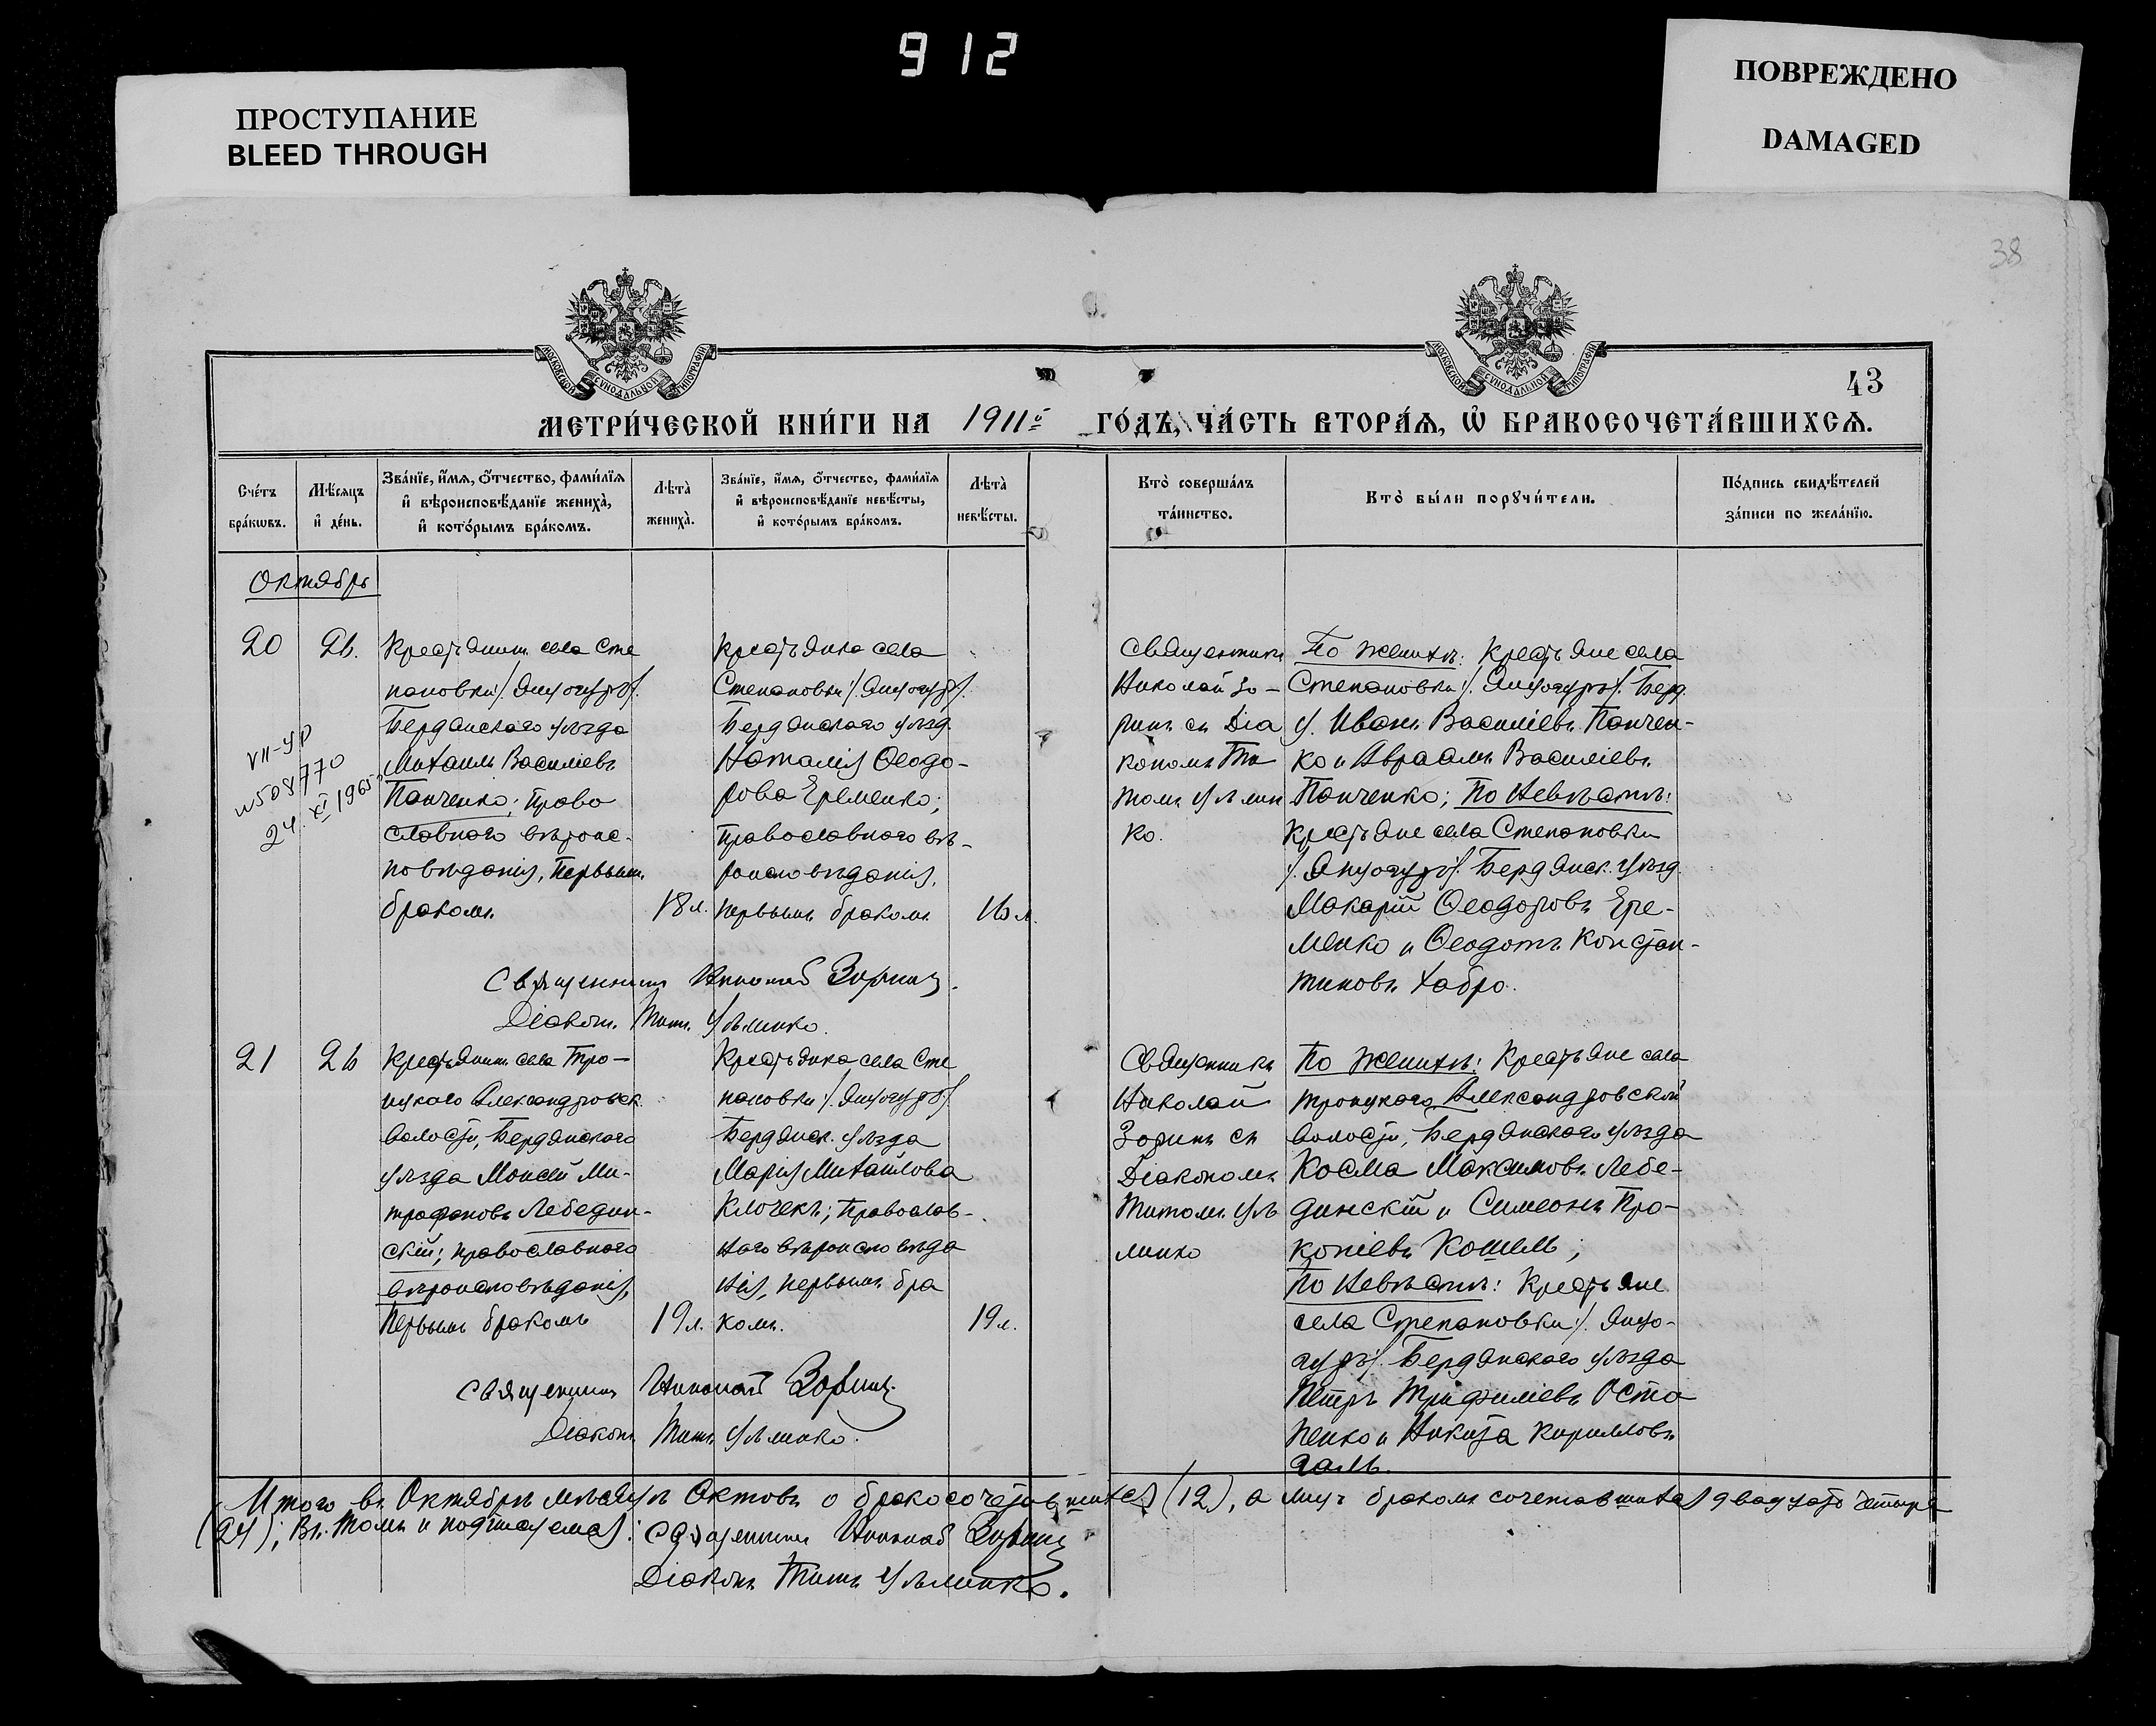 912
ПРОСТУПАНИЕ
BLEED THROUGH
ПОВРЕЖДЕНО
DAMAGED
38
МОСКОВСКОЙ СУНОДАЛЬНОЙ ТИПОГРАФІИ
МОСКОВСКОЙ СУНОДАЛЬНОЙ ТИПОГРАФІИ
43
МЕТРИ́ЧЕСКОЙ КНИ́ГИ НА 1911й ГО́ДЪ, ЧА́СТЬ ВТОРА́Ѧ, Ѡ҆ БРАКОСОЧЕТА́ВШИХСѦ.
Сче́тъ
бра́кѡвъ.
Мѣ́сѧцъ
и҆ де́нь.
Зва́нїе, и҆́мѧ, ѻ҆́тчество, фами́лїѧ
и҆ вѣроисповѣ́данїе жениха̀,
и҆ кото́рымъ бра́комъ.
Лѣта̀
жениха̀.
Зва́нїе, и҆́мѧ, ѻ҆́тчество, фами́лїѧ
и҆ вѣроисповѣ́данїе невѣ́сты,
и҆ кото́рымъ бра́комъ.
Лѣта̀
невѣ́сты.
Кто̀ соверша́лъ
та́инство.
Кто̀ бы́ли порꙋчи́тели.
По́дпись свидѣ́телей
за́писи по жела́нїю.
Октябрь
20
26.
Крестьянинъ села Сте
пановки
Бердянскаго уѣзда
Михаилъ Василіевъ
Панченко; Право
славнаго вѣроис-
повѣданія, Первымъ
бракомъ
18 л.
Крестьянка села
Степановки
Бердянскаго уѣзд.
Наталія Ѳеодо-
рова Еременко;
Православнаго вѣ-
роисповѣданія,
первымъ бракомъ
16 л.
VII-УР
№508770
24. XI 1965
Священникъ
Николай Зо-
ринъ съ Діа
кономъ Ти
томъ Ульян
ко.
По Женихѣ: Крестьяне села
Степановки Берд.
у. Иванъ Василіевъ Панчен-
ко и Авраамъ Василіевъ
Панченко; По Невѣстѣ:
Крестьяне села Степановки
Бердянск. уѣзд.
Макарій Ѳеодоровъ Ере-
менко и Ѳеодотъ Констан-
тиновъ Хабро.
Священникъ Николай Зоринъ.
Діаконъ Титъ
21
26
Крестьянинъ села Тро-
ицкаго Александровск.
волости, Бердянскаго
уѣзда Моисей Ми-
трофановъ Лебедин-
скій; православнаго
вѣроисповѣданія,
Первымъ бракомъ
19 л.
Крестьянка села Сте
пановки
Бердянск. уѣзда
Марія Михайлова
Клочекъ; Православ-
наго вѣроисповѣда
нія, первымъ бра
комъ.
19 л.
Священникъ
Николай
Зоринъ съ
Діакономъ
Титомъ
По Женихѣ: Крестьяне села
Троицкаго Александровской
волости, Бердянскаго уѣзда
Косма Максимовъ Лебе-
динскій и Симеонъ Про-
копіевъ Кошель;
По Невѣстѣ: Крестьяне
села Степановки
Бердянскаго уѣзда
Петръ Трифиліевъ Оста
пенко и Никита Кирилловъ
Галь.
Священникъ Николай Зоринъ.
Діаконъ Титъ
Итого въ Октябрѣ мѣсяцѣ Актовъ о бракосочетавшихся (12), а лицъ бракомъ сочетавшихся двадцать четыре
(24); Въ томъ и подписуемся: Священникъ Николай Зоринъ
Діаконъ Титъ